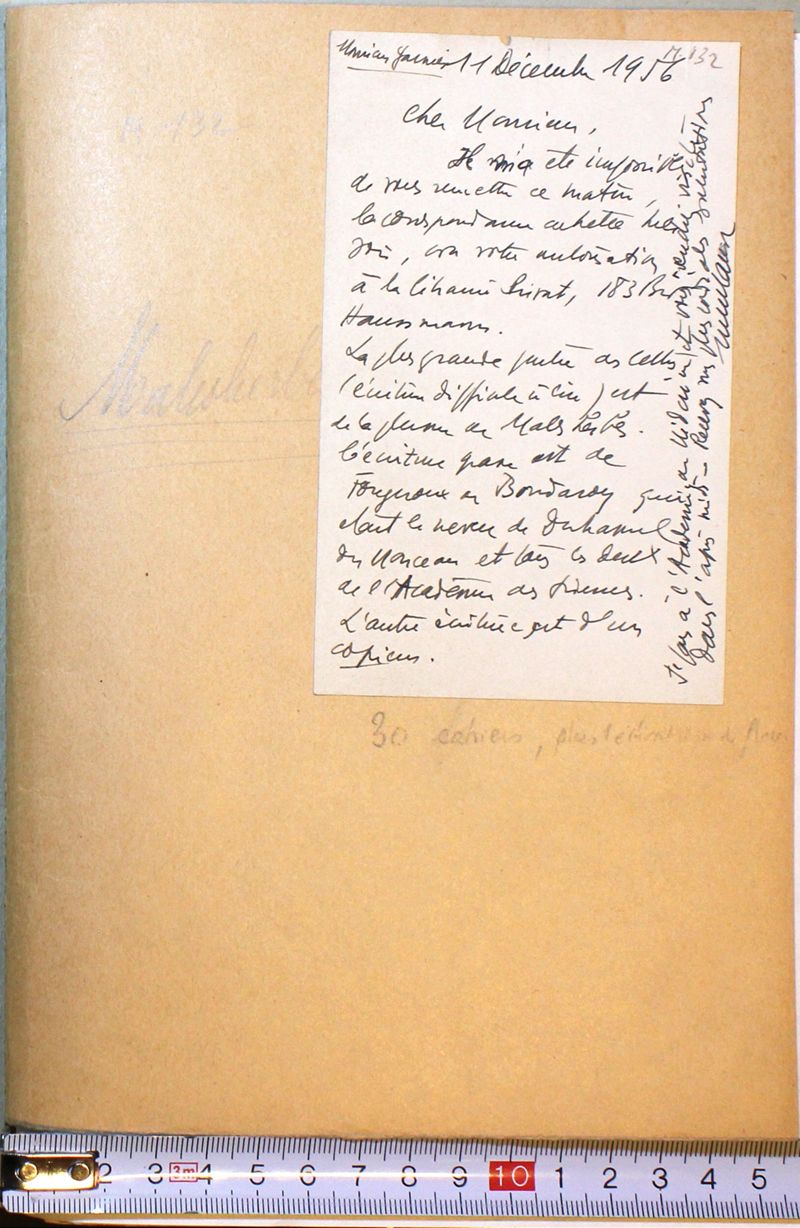 M 132
Monsieur Garnier
11 Décembre 1956
M-132
Cher Monsieur,
Il m'a été impossible
de vous remettre ce matin,
la correspondance achetée hier
soir, avec votre autorisation
à la librairie, 183 Bd
Haussmann.
La plus grande partie de celle
(écriture difficile à lire) est
de la plume de Malesherbes.
L'écriture grasse est de
Fougeroux de Bondaroy qui
était le neveu de Duhamel
du Monceau et tous les deux
de l'Académie des Sciences.
L'autre écriture est d'un
copieur.
Je vais à l'Académie de Médecine et vous rendrai visite
dans l'après midi - Recevez mes plus cordiales salutations
Malesherbes
30 cahiers, plus
2 3 3m 4 5 6 7 8 9 10 1 2 3 4 5